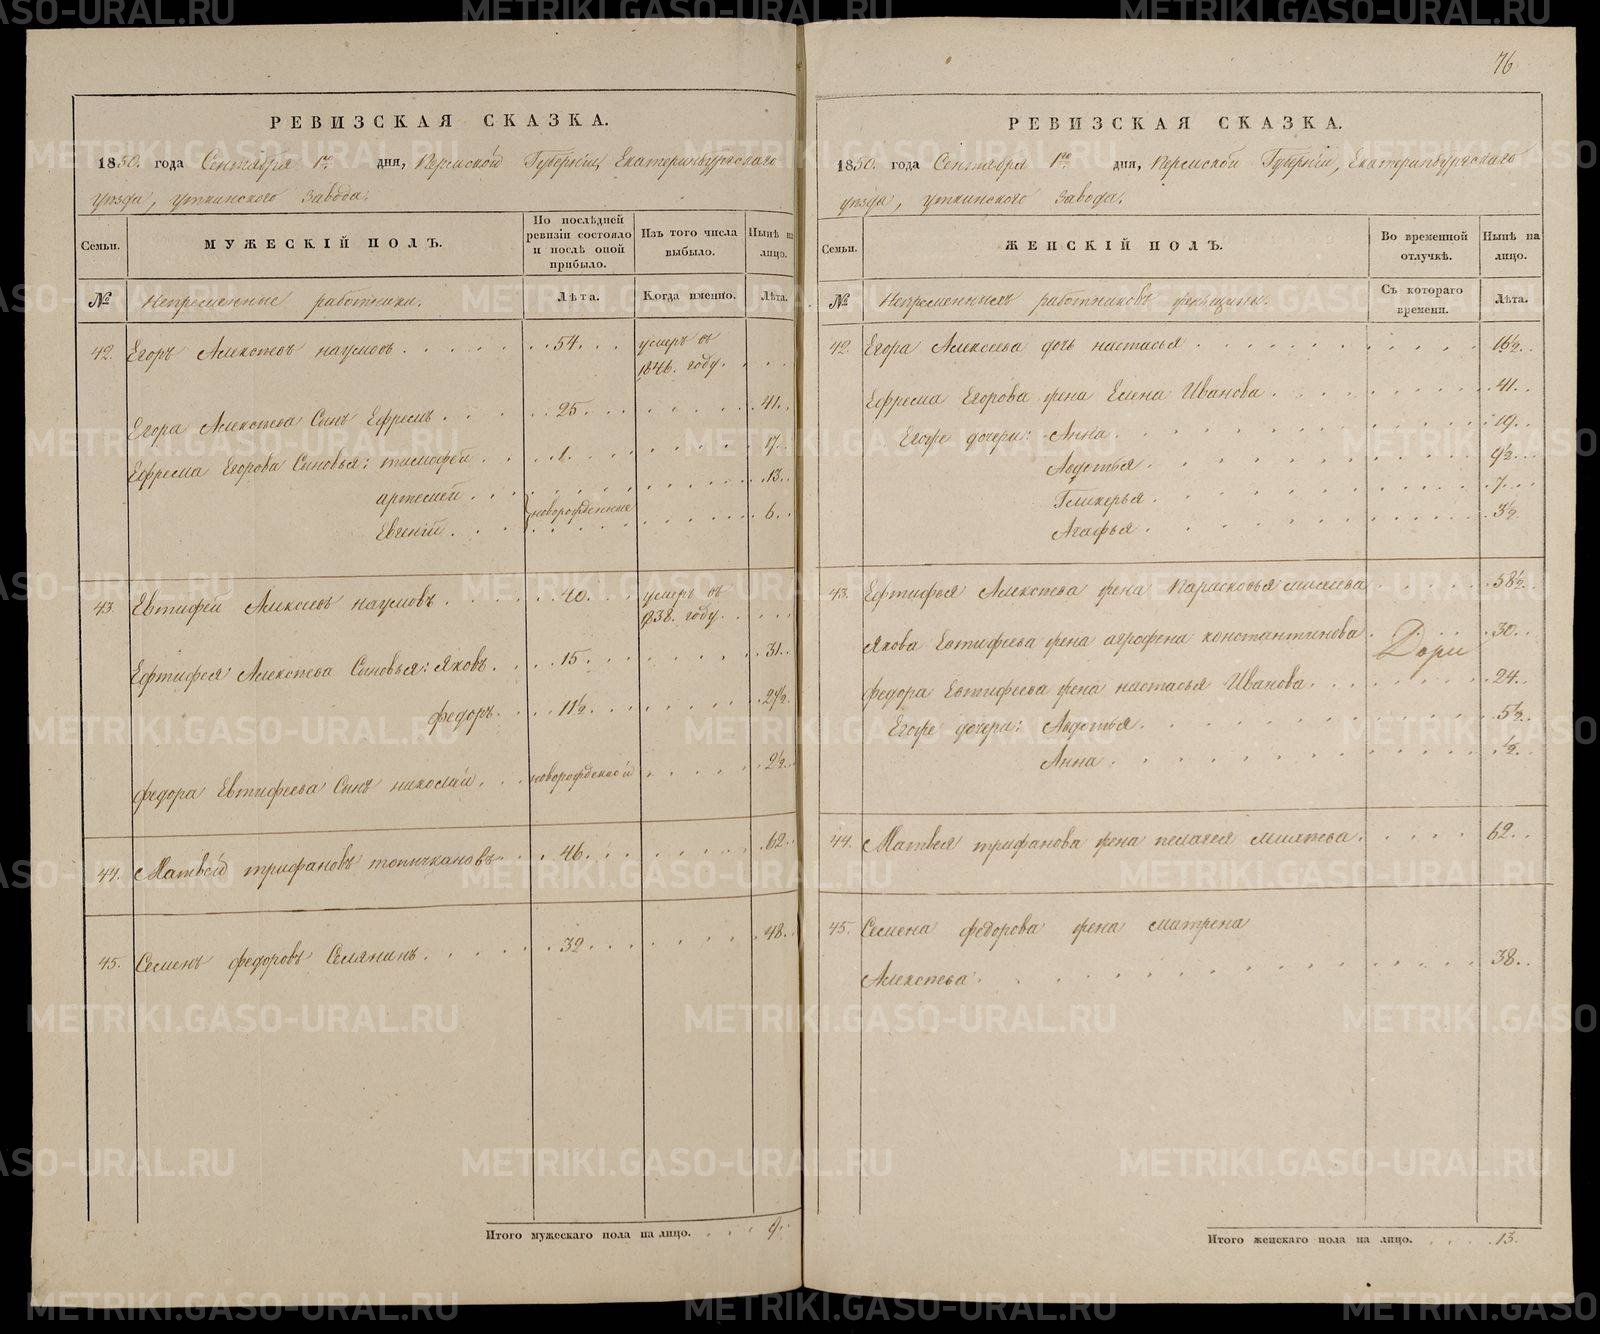 76
РЕВИЗСКАЯ СКАЗКА.
1850. года Сентября 1го дня, Пермской Губерніи, Екатеринбургскаго
уѣзда, уткинского завода.
Семьи.
МУЖЕСКІЙ ПОЛЪ.
По послѣдней ревизіи состояло и послѣ оной прибыло.
Изъ того числа выбыло.
Нынѣ на лицо.
№
Непременные работники.
Лѣта.
Когда именно.
Лѣта.
42. Егоръ Алексѣевъ наумовъ 54. умеръ въ
1846. году.
Егора Алексѣева Сынъ Ефремъ 25. 41.
Ефрема Егорова Сыновья: тимофей 1. 17.
артемей 13.
новорожденные
Евгеній 6.
43. Евтифей Алексѣевъ наумовъ 40. умеръ въ
1838. году.
Ефтифея Алексѣева Сыновья: Яковъ 15 31.
федоръ 11½ 27½
федора Евтифеева Сынъ николай новорожденной 2½
44. Матвѣй трифановъ топычкановъ 46. 62.
45. Семенъ федоровъ Селянинъ 32. 48.
Итого мужескаго пола на лицо. 9.
РЕВИЗСКАЯ СКАЗКА.
1850. года Сентября 1го дня, Пермской Губерніи, Екатеринбургскаго
уѣзда, уткинского завода.
Семьи.
ЖЕНСКІЙ ПОЛЪ.
Во временной отлучкѣ.
Нынѣ на лицо.
№
Непременныхъ работниковъ женщины.
Съ котораго времени.
Лѣта.
42. Егора Алексеева дочь настасья 16½
Ефрема Егорова жена Елена Иванова 41.
Егоже дочери: Анна 19.
Авдотья 9½
Гликерья 7.
Агафья 3½
43. Ефтифья Алексѣева жена Парасковья 58½
Якова Евтифеева жена агрофена константинова 30.
федора Евтифеева жена настасья Иванова 24.
Егоже дочери: Авдотья 5½
Анна ½
44. Матвея трифанова жена пелагея 62.
45. Семена федорова жена матрена
Алексѣева 38.
Итого женскаго пола на лицо. 13.
METRIKI.GASO-URAL.RU